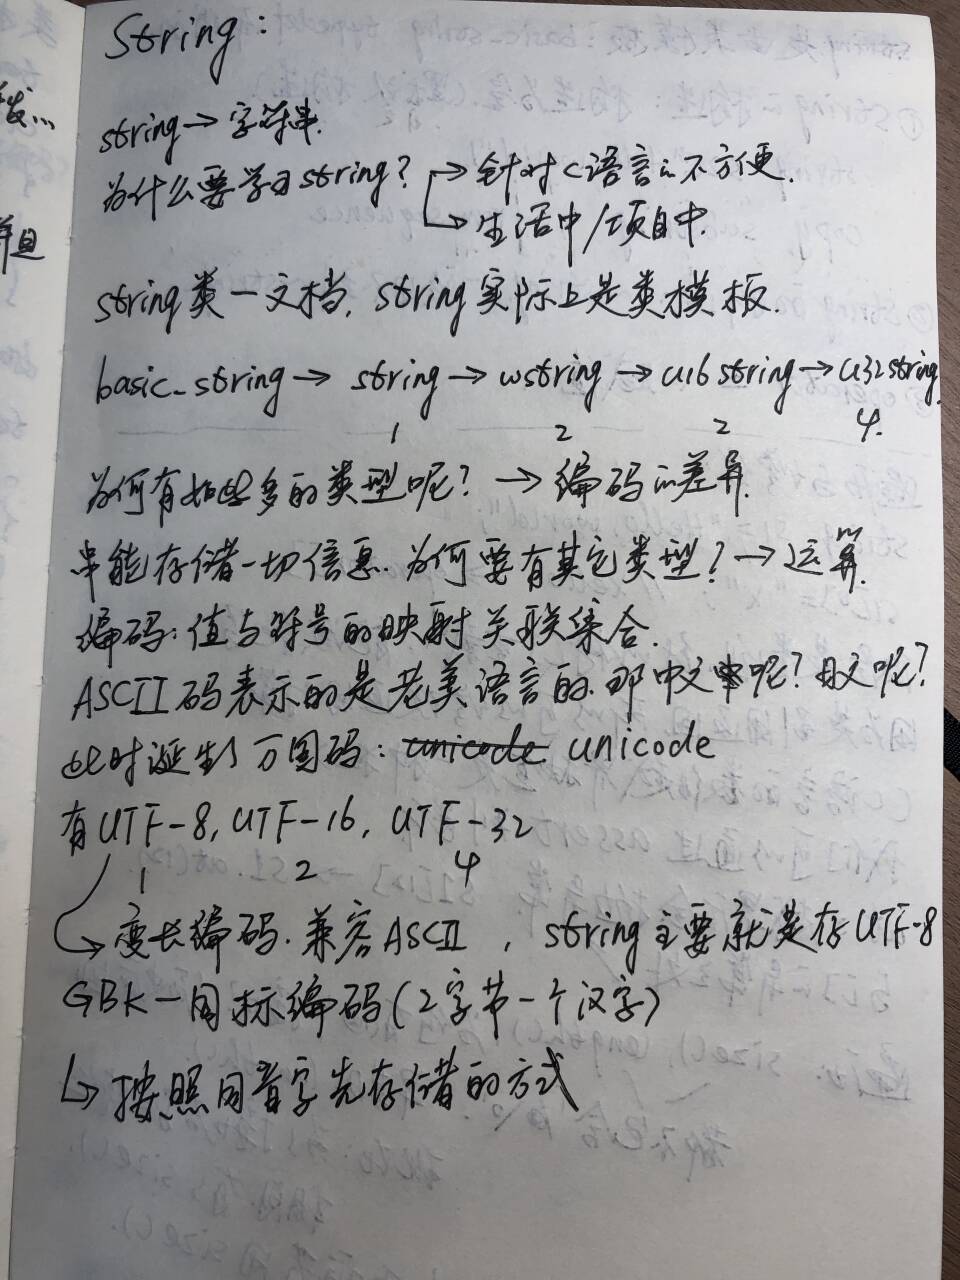 String:
string→字符串.
为什么要学习string? →针对C语言的不方便.
→生活中/项目中.
string类—文档, string实际上是类模板.
basic_string → string → wstring → u16string → u32string.
1 2 2 4.
为何有如此多的类型呢? → 编码的差异.
串能存储一切信息. 为何要有其它类型? → 运算.
编码: 值与符号的映射关联集合.
ASCII码表示的是老美语言的. 那中文呢? 日文呢?
此时诞生了万国码: unicode unicode
有UTF-8, UTF-16, UTF-32
1 2 4
→变长编码. 兼容ASCII, string主要就是存UTF-8
GBK—国标编码(2字节一个汉字)
↳按照同音字先存储的方式